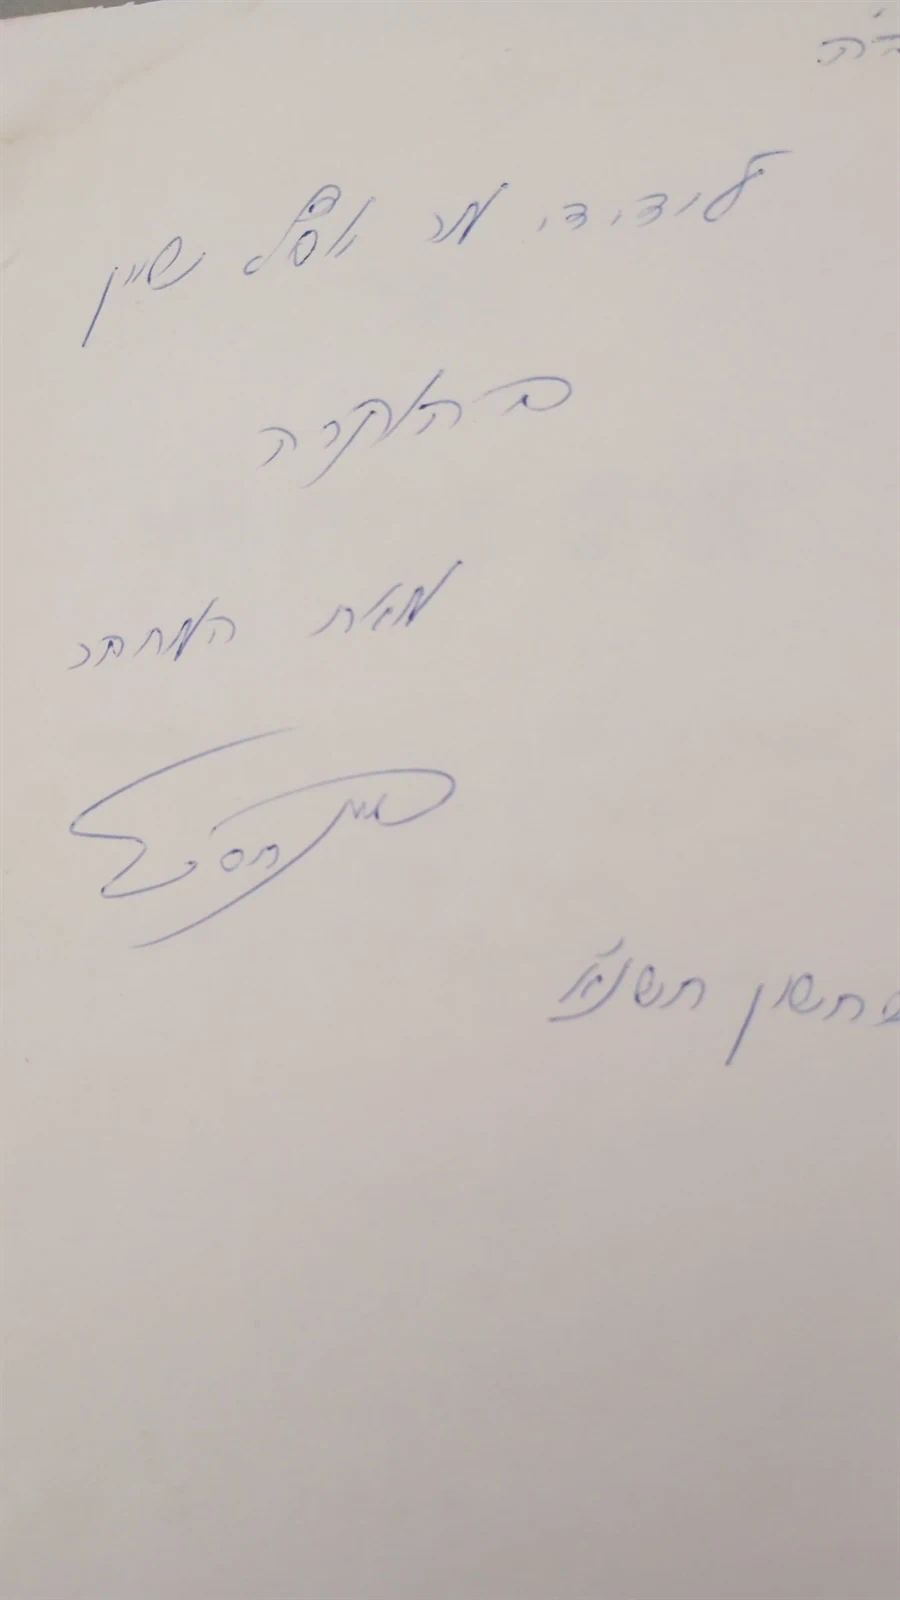 ב"ה
לידידי מר יוסף שיין
בהוקרה
מאת המחבר
חשון תשנ"א